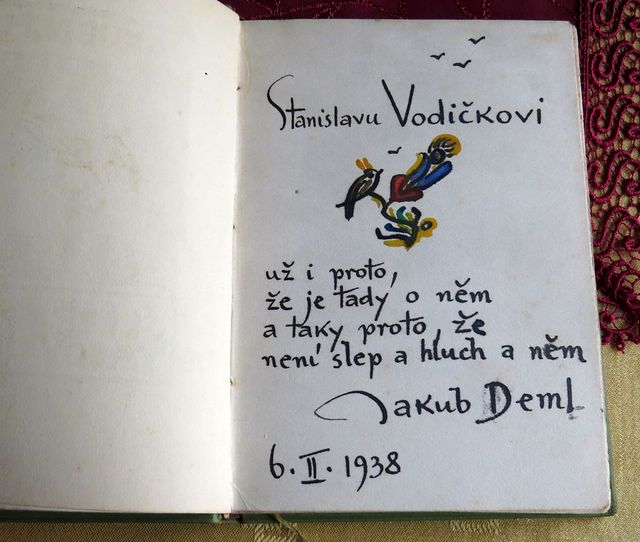 Stanislavu Vodičkovi
už i proto,
že je tady o něm
a taky proto, že
není slep a hluch a něm
Jakub Deml
6. II. 1938